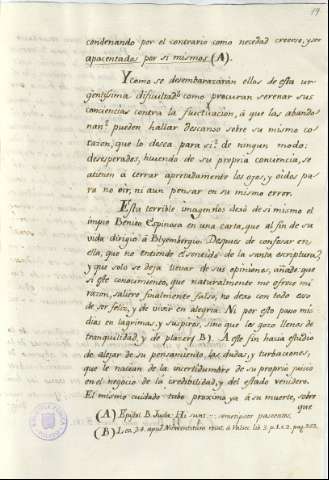 19
condenando por el contrario como necedad creervo, y ser
apacentados por sí mismos (A).
Y como se desembarazarán ellos de esta ur
gentissima dificultad, como procuran serenar sus
conciencias contra la fluctuacion, á que las abando
nan? pueden hallar descanso sobre su mismo co
razon, que lo desea para sí? de ningun modo:
desesperados, huiendo de su propria conciencia, se
atienen á cerrar apretadamente los ojos, y oidos pa
ra no oir, ni aun pensar en su mismo error.
Esta terrible imagen nos dexó de si mismo el
impio Benito Espinosa en una carta, que al fin de su
vida dirigió á Blyembergio. Despues de confesar en
ella, que no entiende el sentido de la santa escriptura,
y que solo se deja llevar de sus opiniones, añade que
si este conocimiento, que naturalmente me ofrece mi
razon, saliere finalmente falso, no dexo con todo eso
de ser feliz, y de vivir en alegria. Ni por esto paso mis
dias en lagrimas, y suspiros, sino que los gozo llenos de
tranquilidad, y de placer (B). A este fin hacia estudio
de alejar de su pensamiento, las dudas, y turbaciones,
que le nacian de la incertidumbre de su proprio juicio
en el negocio de la credibilidad, y del estado venidero.
El mismo cuidado tubo proxima ya á su muerte, sobre
que
(A) Epist. B. Judæ: Hi sunt semetipsos pascentes.
(B)